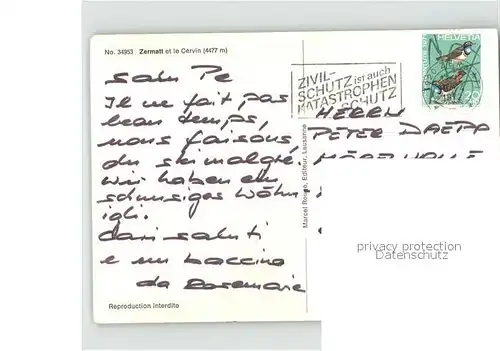 No. 34953 Zermatt et le Cervin (4477 m)
Salu Pe
Il ne fait pas
beau temps,
nous faisons
du ski malgré,
wir haben ein
schmusiges Wöhn-
igli.
Cari saluti
e un baccino
da Rosemarie
Reproduction interdite
Marcel Rouge, Editeur, Lausanne
ZIVIL-
SCHUTZ ist auch
KATASTROPHEN
SCHUTZ
HELVETIA
HERRN
PETER DAEPP
privacy protection
Datenschutz